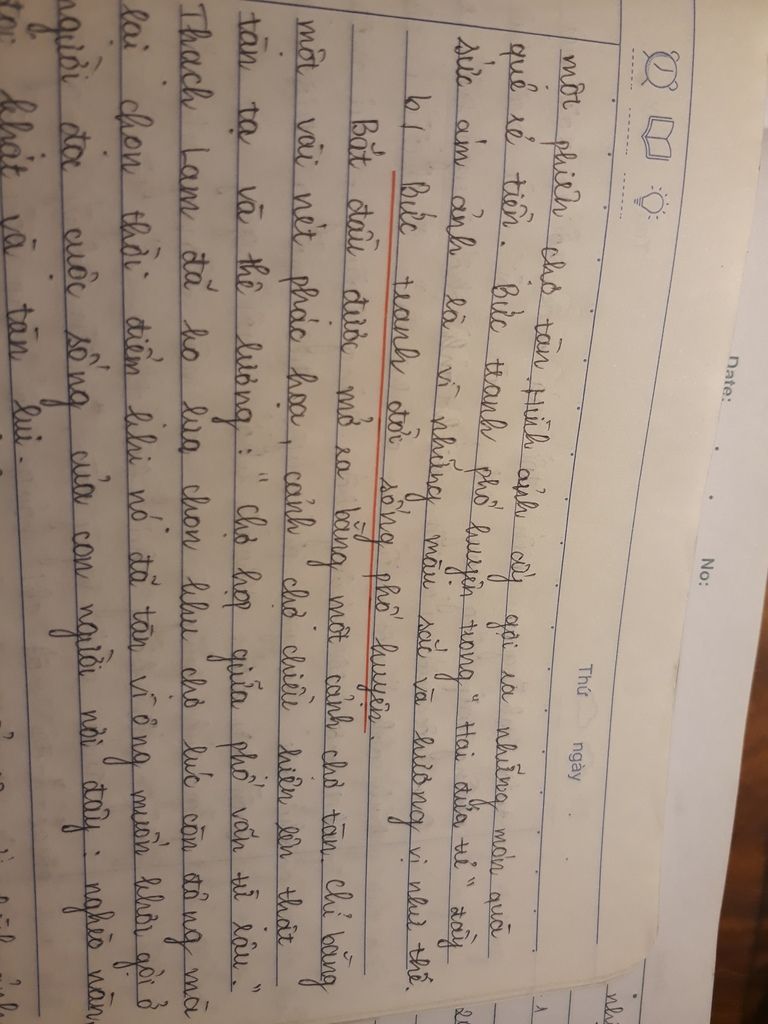 Date:
No:
Thứ ngày
một phiên chợ tàn. Hình ảnh ấy gợi ra những món quà
quê rẻ tiền. Bức tranh phố huyện trong "Hai đứa trẻ" đầy
sức ám ảnh là vì những màu sắc và hương vị như thế.
b/ Bức tranh đời sống phố huyện.
Bắt đầu được mở ra bằng một cảnh chợ tàn. Chỉ bằng
một vài nét phác họa, cảnh chợ chiều hiện lên thật
tàn tạ và thê lương: "chợ họp giữa phố vãn từ lâu."
Thạch Lam đã ko lựa chọn khu chợ lúc còn đông mà
lại chọn thời điểm khi nó đã tàn vì ông muốn khơi gợi ở
người đọc cuộc sống của con người nơi đây: nghèo nàn,
khát và tàn lụi.